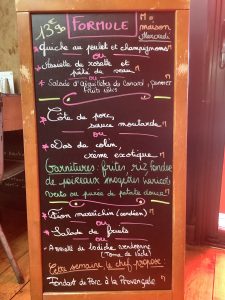 13€90 FORMULE
= maison
Mercredi
Quiche au poulet et champignons
ou
Assiette de rosette et
pâté de veau
ou
Salade d'Aiguillettes de Canard, pommes
fruits secs
Côte de porc,
sauce moutarde
ou
Dos de colin,
crème exotique
Garnitures: frites, riz, fondue
de poireaux, mogettes, haricots
verts ou purée de patate douce
Flan maraîchin (vendéen)
ou
Salade de fruits
ou
Assiette de la
Cette semaine le chef propose
Fondant de Porc à la Provençale